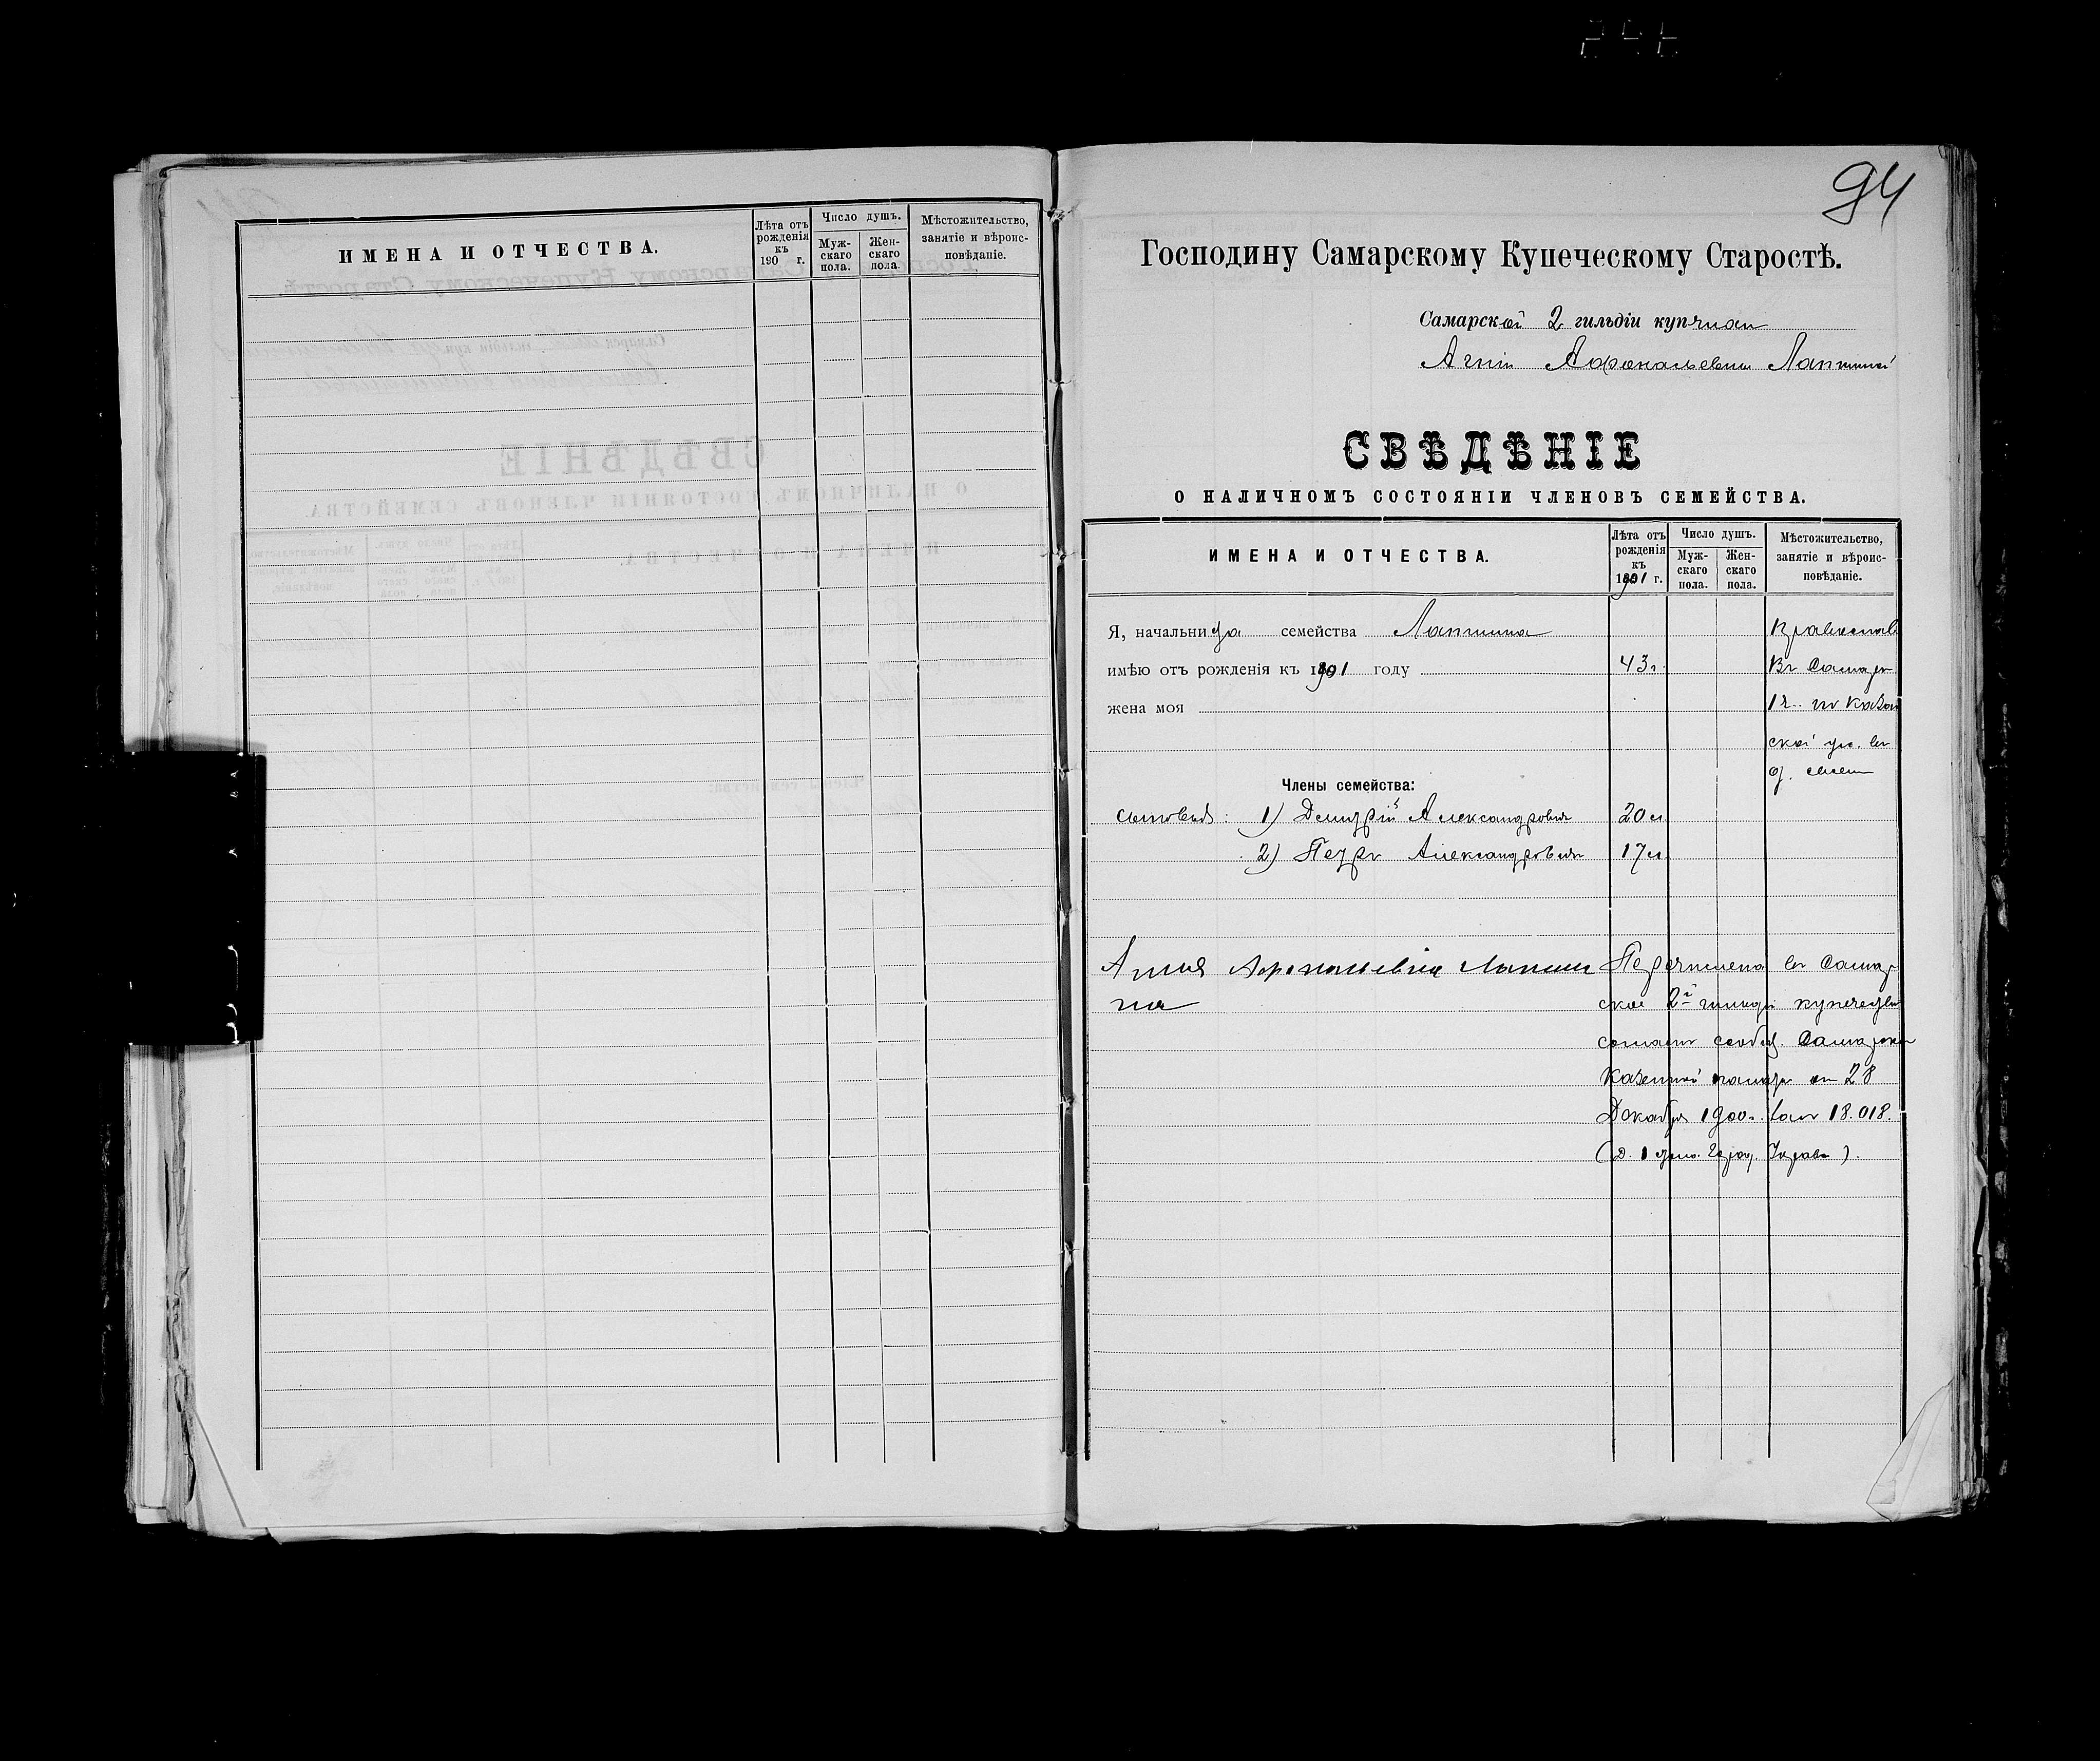 ИМЕНА И ОТЧЕСТВА.
Лѣта отъ рожденія къ 190 г.
Число душъ.
Мужскаго пола.
Женскаго пола.
Мѣстожительство, занятіе и вѣроисповѣданіе.
94
Господину Самарскому Купеческому Старостѣ.
Самарской 2 гильдіи купчихи
Агніи Лапшиной
СВѢДѢНІЕ
О НАЛИЧНОМЪ СОСТОЯНІИ ЧЛЕНОВЪ СЕМЕЙСТВА.
ИМЕНА И ОТЧЕСТВА.
Лѣта отъ рожденія къ 1901 г.
Число душъ.
Мужскаго пола.
Женскаго пола.
Мѣстожительство, занятіе и вѣроисповѣданіе.
Я, начальница семейства Лапшина
Православ
имѣю отъ рожденія къ 1901 году 43 г.
Въ Самарѣ
жена моя
1 ч. по Казан
ской ул. въ
д. своем
Члены семейства:
сыновья: 1) Дмитрій Александровъ 20 л
2) Петръ Александровъ 17 л
Агнія Лапши
на
Перечислена въ Самар
ское 2й гильдіи купечество
согласно сообщ. Самарской
Казенной палаты от 28
Декабря 1900 г. за № 18.018.
(д. 1 Управы).